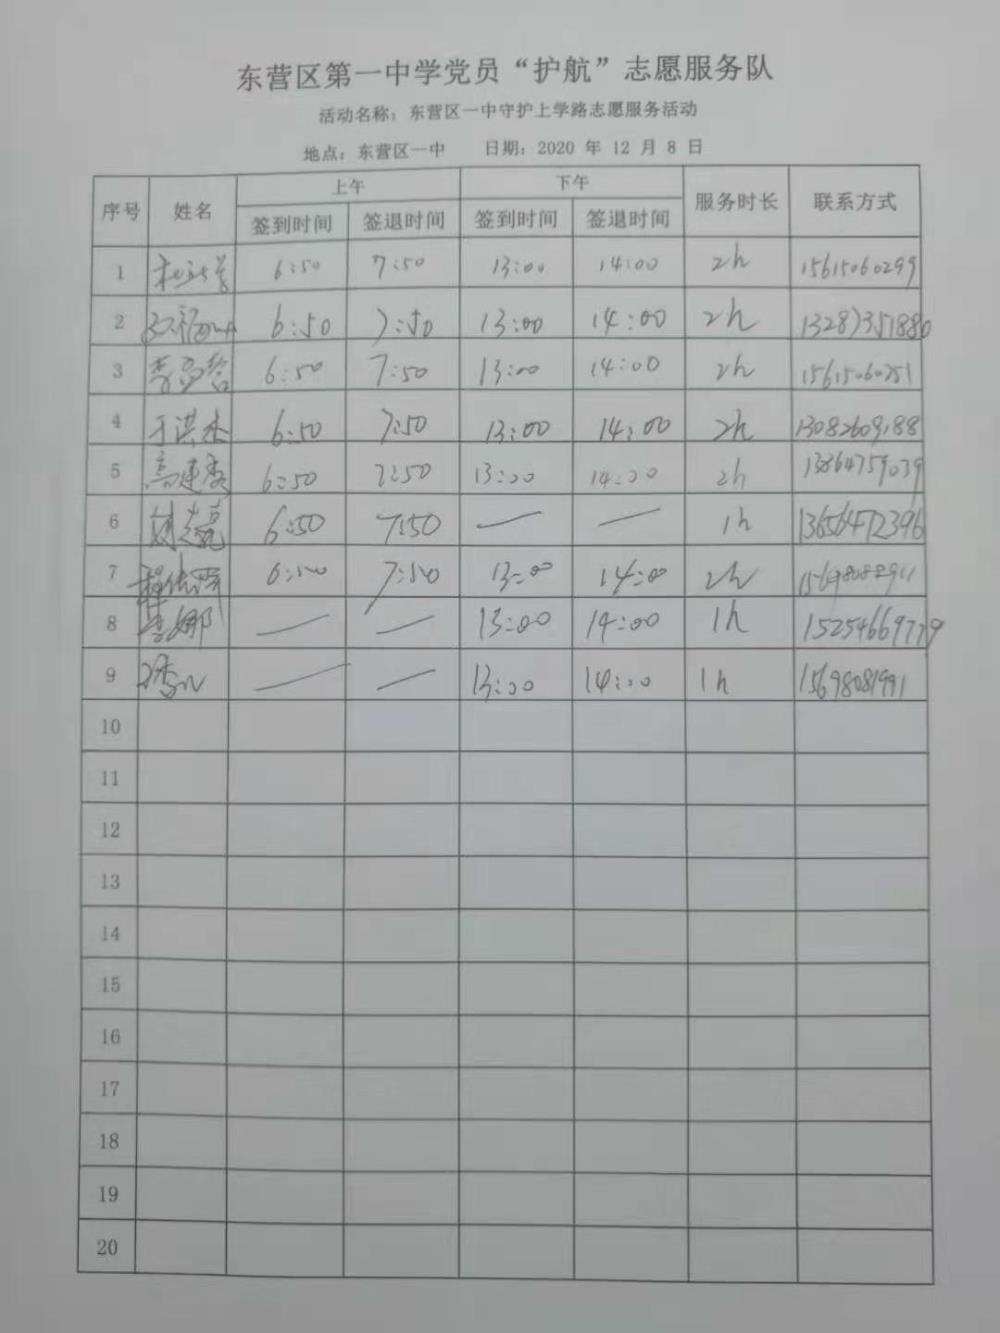 东营区第一中学党员“护航”志愿服务队
活动名称：东营区一中守护上学路志愿服务活动
地点：东营区一中 日期：2020 年 12 月 8 日
序号 姓名 上午 下午 服务时长 联系方式
签到时间 签退时间 签到时间 签退时间
1 6:50 7:50 13:00 14:00 2h 15615060299
2 6:50 7:50 13:00 14:00 2h 13287351880
3 6:50 7:50 13:00 14:00 2h 15615060251
4 于洪杰 6:50 7:50 13:00 14:00 2h 13082609188
5 6:50 7:50 13:00 14:00 2h 13864759039
6 6:50 7:50 — — 1h 13656472396
7 6:50 7:50 13:00 14:00 2h
8 李娜 — — 13:00 14:00 1h 15254669779
9 — — 13:00 14:00 1h 15698081991
10
11
12
13
14
15
16
17
18
19
20